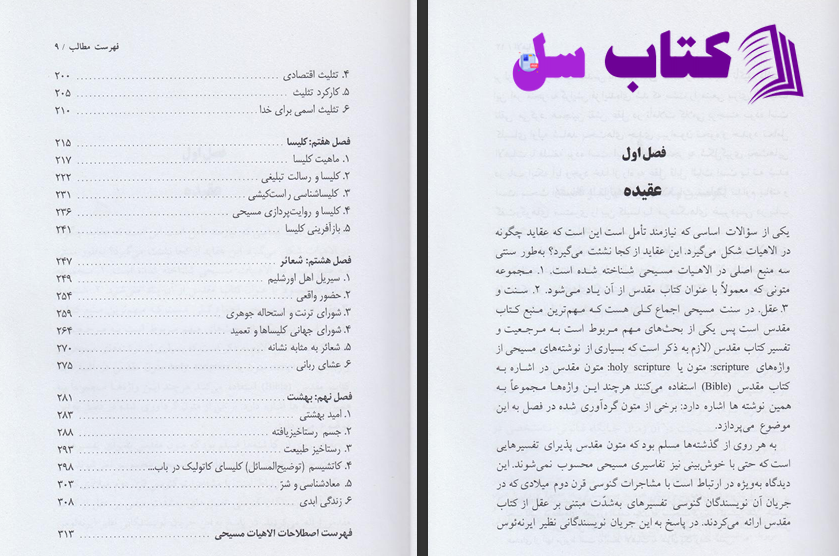 کتاب سل
فصل اول
عقیده
یکی از سؤالات اساسی که نیازمند تأمل است این است که عقاید چگونه
در الاهیات شکل می‌گیرد. این عقاید از کجا نشئت می‌گیرد؟ به‌طور سنتی
سه منبع اصلی در الاهیات مسیحی شناخته شده است. ۱. مجموعه
متونی که معمولاً با عنوان کتاب مقدس از آن یاد می‌شود. ۲. سنت و
۳. عقل. در سنت مسیحی اجماع کلی هست که مهم‌ترین منبع کتاب
مقدس است پس یکی از بحث‌های مهم مربوط است به مرجعیت و
تفسیر کتاب مقدس (لازم به ذکر است که بسیاری از نوشته‌های مسیحی از
واژه‌های scripture: متون یا holy scripture: متون مقدس در اشاره به
کتاب مقدس (Bible) استفاده می‌کنند هرچند این واژه‌ها مجموعاً به
همین نوشته ها اشاره دارد: برخی از متون گردآوری شده در فصل به این
موضوع می‌پردازد.
به هر روی از گذشته‌ها مسلم بود که متون مقدس پذیرای تفسیرهایی
است که حتی با خوش‌بینی نیز تفاسیری مسیحی محسوب نمی‌شوند. این
دیدگاه به‌ویژه در ارتباط است با مشاجرات گنوسی قرن دوم میلادی که در
جریان آن نویسندگان گنوسی تفسیرهای به‌شدّت مبتنی بر عقل از کتاب
مقدس ارائه می‌کردند. در پاسخ به این جریان نویسندگانی نظیر ایرنه‌ئوس
فهرست مطالب / ۹
۴. تثلیث اقتصادی ۲۰۰
۵. کارکرد تثلیث ۲۰۵
۶. تثلیث اسمی برای خدا ۲۱۰
فصل هفتم: کلیسا ۲۱۵
۱. ماهیت کلیسا ۲۱۷
۲. کلیسا و رسالت تبلیغی ۲۲۲
۳. کلیساشناسی راست‌کیشی ۲۳۱
۴. کلیسا و روایت‌پردازی مسیحی ۲۳۶
۵. بازآفرینی کلیسا ۲۴۱
فصل هشتم: شعائر ۲۴۷
۱. سیریل اهل اورشلیم ۲۴۹
۲. حضور واقعی ۲۵۴
۳. شورای ترنت و استحاله جوهری ۲۵۹
۴. شورای جهانی کلیساها و تعمید ۲۶۴
۵. شعائر به مثابه نشانه ۲۷۰
۶. عشای ربانی ۲۷۵
فصل نهم: بهشت ۲۸۱
۱. امید بهشتی ۲۸۳
۲. جسم رستاخیزیافته ۲۸۸
۳. رستاخیز طبیعت ۲۹۳
۴. کاتشیسم (توضیح‌المسائل) کلیسای کاتولیک در باب... ۲۹۸
۵. معادشناسی و شرّ ۳۰۳
۶. زندگی ابدی ۳۰۸
فهرست اصطلاحات الاهیات مسیحی ۳۱۳